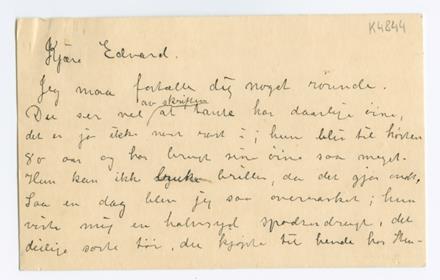 K4844
Kjære Edvard.
Jeg maa fortælle dig noget rörende.
av skriften
Du ser vel at tante har daarlige öine,
det er jo ikke noe rart i; hun blir til hösten
80 aar og har brugt sine öine saa meget.
Hun kan ikke bruke briller, da det gjör ondt.
Saa en dag blev jeg saa overrasket; hun
viste mig en halvsyd spadserdragt, det
deilige sorte töi, du kjöpte til hende hos